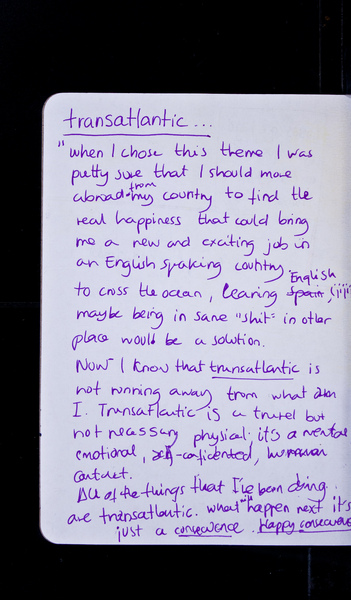 transatlantic...
"when I chose this theme I was
pretty sure that I should move
abroad from my country to find the
real happiness that could bring
me a new and exciting job in
an English speaking country.
to cross the ocean, learning Spain English,
maybe being in same "shit" in other
place would be a solution.
Now I know that transatlantic is
not running away from what
I. Transatlantic is a travel but
not necessary physical. it's a mental
emotional, self-confidented, human
contact.
All of the things that I've been doing
are transatlantic. what will happen next it's
just a consequence. Happy consequence